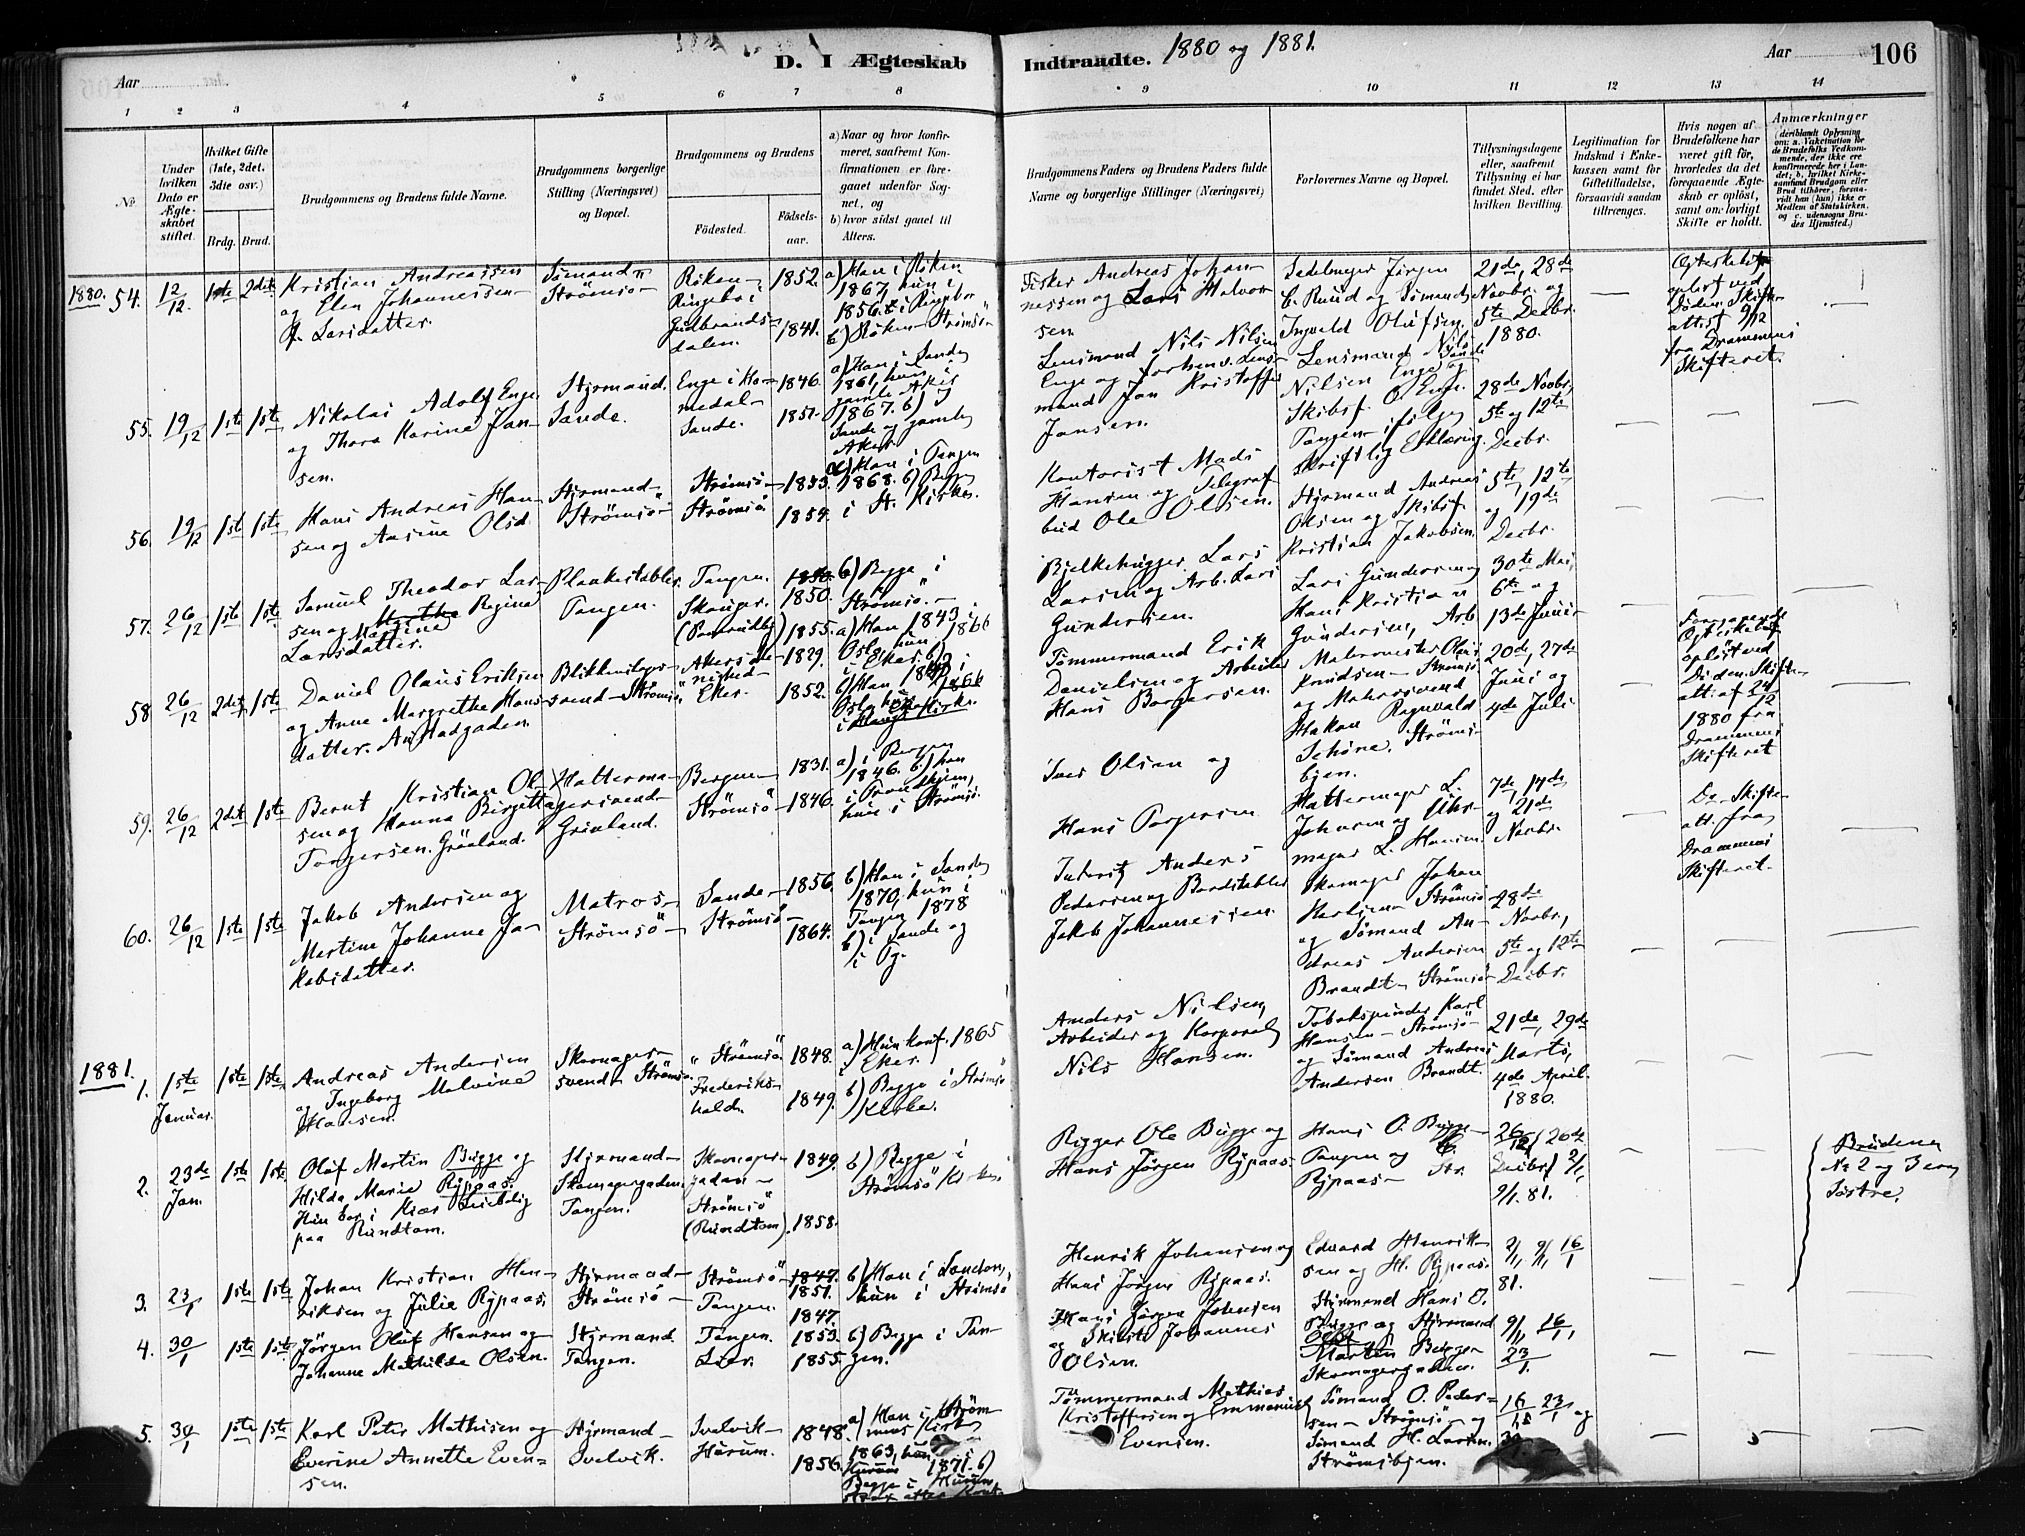 D. I Ægteskab Indtraadte. 1880 og 1881.
Aar
Aar
106
1 2 3 4 5 6 7 8 9 10 11 12 13 14
№
Under hvilken Dato er Ægteskabet stiftet.
Hvilket Gifte (1ste, 2det, 3die osv.)
Brdg. Brud.
Brudgommens og Brudens fulde Navne.
Brudgommens borgerlige Stilling (Næringsvei) og Bopæl.
Brudgommens og Brudens
Fødested.
Fødselsaar.
a) Naar og hvor konfirmeret, saafremt Konfirmationen er foregaaet udenfor Sognet, og
b) hvor sidst gaaet til Alters.
Brudgommens Faders og Brudens Faders fulde Navne og borgerlige Stillinger (Næringsvei)
Forlovernes Navne og Bopæl.
Tillysningsdagene eller, saafremt Tillysning ei har fundet Sted, efter hvilken Bevilling.
Legitimation for Indskud i Enkekassen samt for Giftetilladelse, forsaavidt saadan tiltrænges.
Hvis nogen af Brudefolkene har været gift før, hvorledes da det foregaaende Ægteskab er opløst, samt om lovligt Skifte er holdt.
Anmærkninger
1880. 54. 12/12 1ste 2det
Kristian Andreassen
og Elen Johannessen
f. Larsdatter.
Sømand
Strømsø
Røken
Ringebo i
Gudbrandsdalen.
1852.
1841.
a) Han i Røken
1867, hun i
1856 i Ringebo
b) Røken Strømsø
Fisker Andreas Johannessen og Lars Halvorsen.
Sadelmager Jørgen
C. Ruud og Sømand
Ingvald Olufsen.
21de, 28de
Novbr. og
5te Decbr.
1880.
Ægteskabet
opløst ved
Døden. Skifteattest 9/12
fra Drammens
Skifteret.
55. 19/12 1ste 1ste
Nikolai Adolf Enge
og Thora Karine Jansen.
Styrmand.
Sande.
Enge i Komedal
Sande.
1846.
1851.
a) Han i Sande
1861, hun i
gamle Aker
1867. b) i
Sande og gamle
Aker
Lensmand Nils Nilsen
Enge og forhenv. Lensmand Jan Kristoffer
Jansen.
Lensmand Nils
Nilsen Enge og
Skibsf. O. Enge
Tangen ifølge
skriftlig Erklæring.
28de Novbr,
5te og 12te
Decbr.
56. 19/12 1ste 1ste
Hans Andreas Hansen og Aasine Olsd.
Styrmand
Strømsø
Strømsø
Strømsø
1853.
1859.
a) Han i Tangen
1868. b) Begge
i St. Kirke.
Kontorist Mads
Hansen og Telegrafbud Ole Olsen.
Styrmand Andreas
Olsen og Skibsf.
Kristian Jakobsen.
5te, 12te
og 19de
Decbr.
57. 26/12 1ste 1ste
Samuel Theodor Larsen og Marthe Regine
Martine
Larsdatter.
Plankestabler
Tangen.
Tangen.
Skouger.
1850.
1850.
1855.
b) Begge i
Strømsø.
Bjelkehugger Lars
Larsen og Arb. Lars
Gundersen.
Lars Gundersen og
Hans Kristian
Gundersen, Arb
30te Mai,
6te og
13de Juni
58. 26/12 2det 1ste
Daniel Olaus Eriksen
og Anne Margrethe Hansdatter. Austadgaden.
Strømsø
Eker.
1829.
1852.
Tømmermand Erik
Danielsen og Arbeider
Hans Borgersen.
Knudsen Strømsø
Hakon Ragnvald
Schöne. Strømsbyen.
20de, 27de
Juni og
4de Juli
Foregaaende
Ægteskabet
opløst ved
Døden. Skifteatt. af 24/12
1880 fra
Drammens
Skifteret
59. 26/12 2det 1ste
Bernt Kristian Olsen og Hanna Birgitte
Torgersen. Grønland.
Hattemagersvend
Grönland.
Bergen
Strømsø
1831.
1846.
a) i Bergen
1846. b) han
i Trondhjem,
hun i Strømsø.
Iver Olsen og
Hans Torgersen
Hattemager L.
Johnsen og Uhrmager L. Hansen
7de, 14de
og 21de
Novbr.
Do Skifteatt. fra
Drammens
Skifteret.
60. 26/12 1ste 1ste
Jakob Andersen og
Martine Johanne Jakobsdatter.
Matros
Strømsø
Sande
Strømsø
1856.
1864.
b) Han i Sande
1870, hun i
Tangen 1878
b) i Sande og
i Tg.
Inderst Anders
Pedersen og Bordstabler
Jakob Johannessen.
Skomager Johan
Strømsø
og Sømand Andreas Andersen
Brandt Strømsø
28de
Novbr,
5te og 12te
Decbr.
1881. 1. 1ste Januar. 1ste 1ste
Andreas Andersen
og Ingeborg Malvine
Hansen.
Skomagersvend Strømsø
Strømsø
Frederikshald.
1848.
1849.
a) Hun konf. 1865
Eker.
b) Begge i Strømsø
Kirke.
Anders Nilsen,
Arbeider og Korporal
Nils Hansen.
Tobakspinder Karl
Hansen Strømsø
og Sømand Andreas
Andersen Brandt.
21de, 29de
Marts,
4de April
1880.
2. 23de Jan. 1ste 1ste
Oluf Martin Bugge og
Hilda Marie Rypaas.
Hun bor i
paa Rundtom.
Styrmand
Skomagergaden
Tangen.
Skomagergaden
Strømsø
(Rundtom)
1849.
1858.
b) Begge i
Strømsø Kirke.
Rigger Ole Bugge og
Hans Jørgen Rypaas.
Hans O. Bugge
Tangen og
Rypaas Str.
26/12
Decbr 2/1,
9/1. 81.
Brudene
No 2 og 3 ere
Søstre.
3. 23/1 1ste 1ste
Johan Kristian Henriksen og Julie Rypaas.
Styrmand
Strømsø
Strømsø
Tangen.
1847.
1851.
b) Han i London,
hun i Strømsø
Henrik Johansen og
Hans Jørgen Rypaas.
Edvard Henriksen og H. Rypaas.
2/1, 9/1, 16/1
81.
4. 30/1 1ste 1ste
Jørgen Oluf Hansen og
Johanne Mathilde Olsen.
Styrmand
Tangen.
Tangen.
Lier.
1847.
1853.
1855.
b) Begge i Tangen.
Hans Jørgen Johnsen
og Skibst. Johannes
Olsen.
Styrmand Hans O.
Bugge og Styrmand
Oluf
Martin Bugge
Skomagergaden.
9/1, 16/1,
23/1.
5. 30/1 1ste 1ste
Karl Peter Mathisen og
Everine Annette Evensen.
Styrmand
Svelvik.
Svelvik
Hurum.
1848.
1856.
a) Han i Strømmens Kirke
1863, hun
Hurum 1871. b)
Begge i Hurum
Tømmermand Mathias
Kristoffersen og Emmanuel
Evensen.
Sømand O. Pedersen Strømsø og
Sømand H. Larsen.
Strømsbyen.
16/1 23/1 og